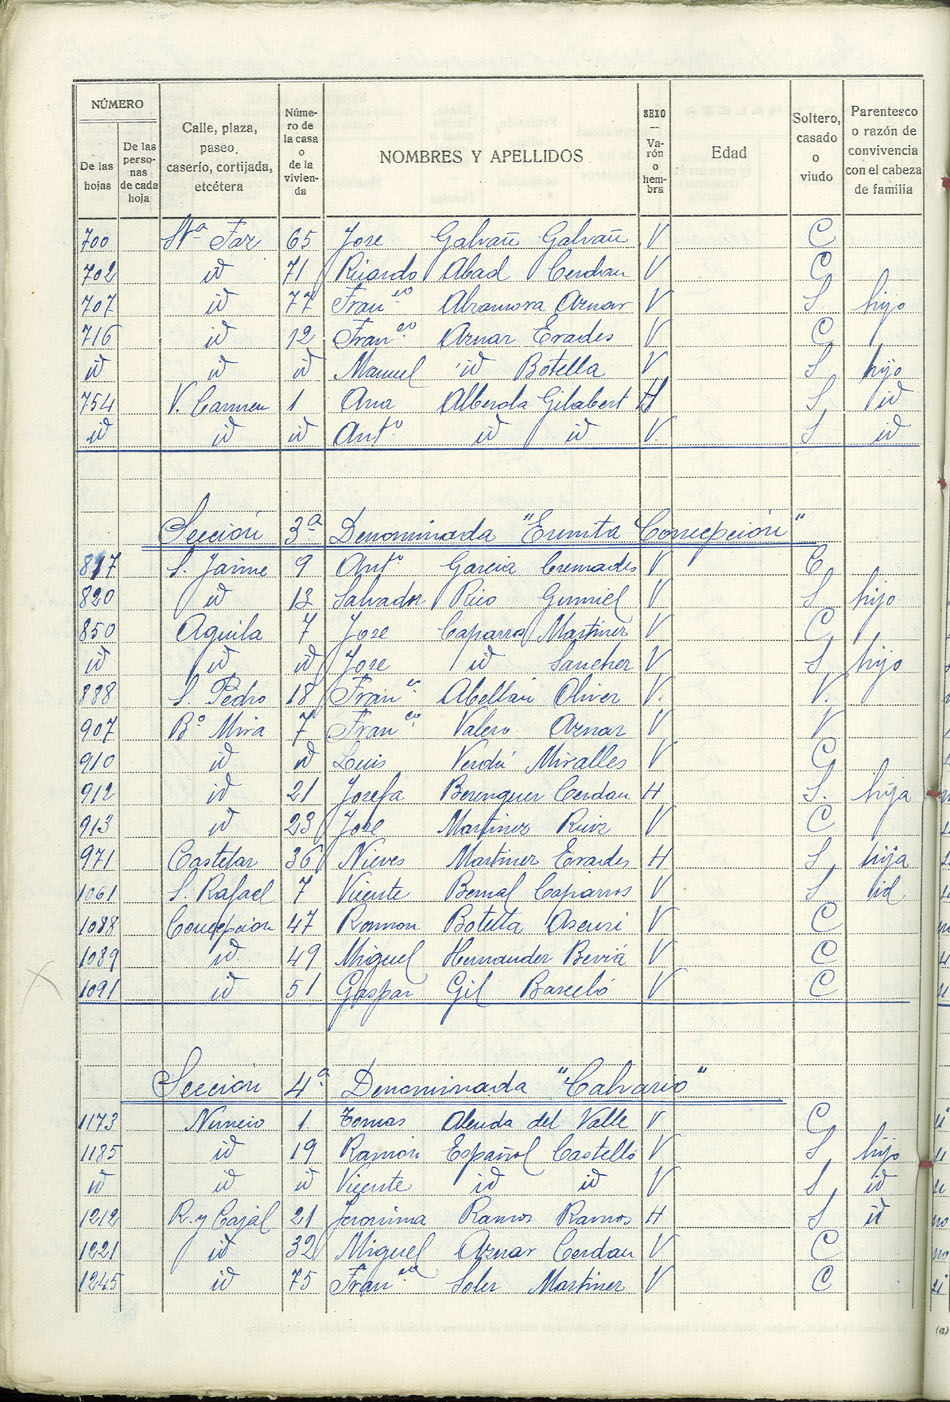 NÚMERO
De las hojas
De las personas de cada hoja
Calle, plaza, paseo, caserío, cortijada, etcétera
Número de la casa o de la vivienda
NOMBRES Y APELLIDOS
SEXO — Varón o hembra
Edad
Soltero, casado o viudo
Parentesco o razón de convivencia con el cabeza de familia
700 Stª Faz 65 Jose Galvañ Galvañ V C
702 id 71 Ricardo Abad Cerdan V C
707 id 77 Franco Abramora Aznar V S hijo
716 id 12 Franco Aznar Erades V C
id id id Manuel id Botella V S hijo
754 V. Carmen 1 Ana Alberola Gilabert H S id
id id id Antº id id V. S id
Sección 3ª Denominada "Ermita Concepción"
817 S. Jaime 9 Antº Garcia Cremades V C
820 id 13 Salvador Rico V S hijo
850 Aguila 7 Jose Caparros Martinez V C
id id id Jose id Sanchez V S hijo
888 S. Pedro 18 Franco Abellan Oliver V. V.
907 Bº Mira 7 Franco Valero Aznar V V
910 id id Luis Verdú Miralles V C
912 id 21 Josefa Berenguer Cerdan H S. hija
913 id 23 Jose Martinez Ruiz V C
971 Castelar 36 Nieves Martinez Erades H S hija
1061 S. Rafael 7 Vicente Bernal Caparros V S id
1088 Concepcion 47 Ramon Botella Asensi V C
1089 id. 49 Miguel Hernandez Beviá V C
1091 id 51 Gaspar Gil Barceló V C
Sección 4ª Denominada "Calvario"
1173 Nuncio 1. Tomas del Valle V C
1185 id 19 Ramón Español Castelló V S hijo
id id id Vicente id id V S id
1212 R. y Cajal 21 Jeronima Ramos Ramos H S id
1221 id 32 Miguel Aznar Cerdan V C
1245 id 75 Franco Soler Martinez V C